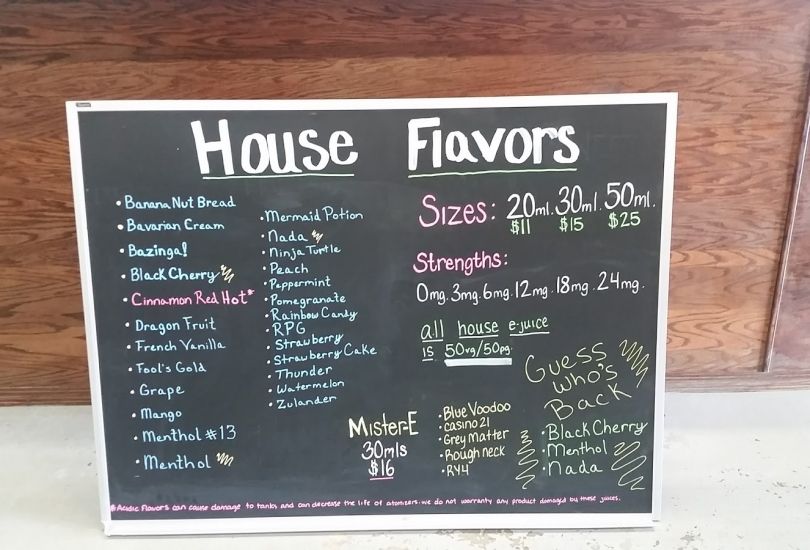 House Flavors
• Banana Nut Bread
• Bavarian Cream
• Bazinga!
• Black Cherry
• Cinnamon Red Hot*
• Dragon Fruit
• French Vanilla
• Fool's Gold
• Grape
• Mango
• Menthol #13
• Menthol
• Mermaid Potion
• Nada
• Ninja Turtle
• Peach
• Peppermint
• Pomegranate
• Rainbow Candy
• RPG
• Strawberry
• Strawberry Cake
• Thunder
• Watermelon
• Zulander
Sizes: 20ml. 30ml. 50ml.
$11 $15 $25
Strengths:
0mg. 3mg. 6mg. 12mg. 18mg. 24mg.
all house e-juice
is 50vg/50pg.
Mister-E
30mls
$16
• Blue Voodoo
• Casino 21
• Grey Matter
• Rough neck
• RY4
Guess
Who's
Back
• Black Cherry
• Menthol
• Nada
*Acidic Flavors can cause damage to tanks and can decrease the life of atomizers. we do not warranty any product damaged by these juices.